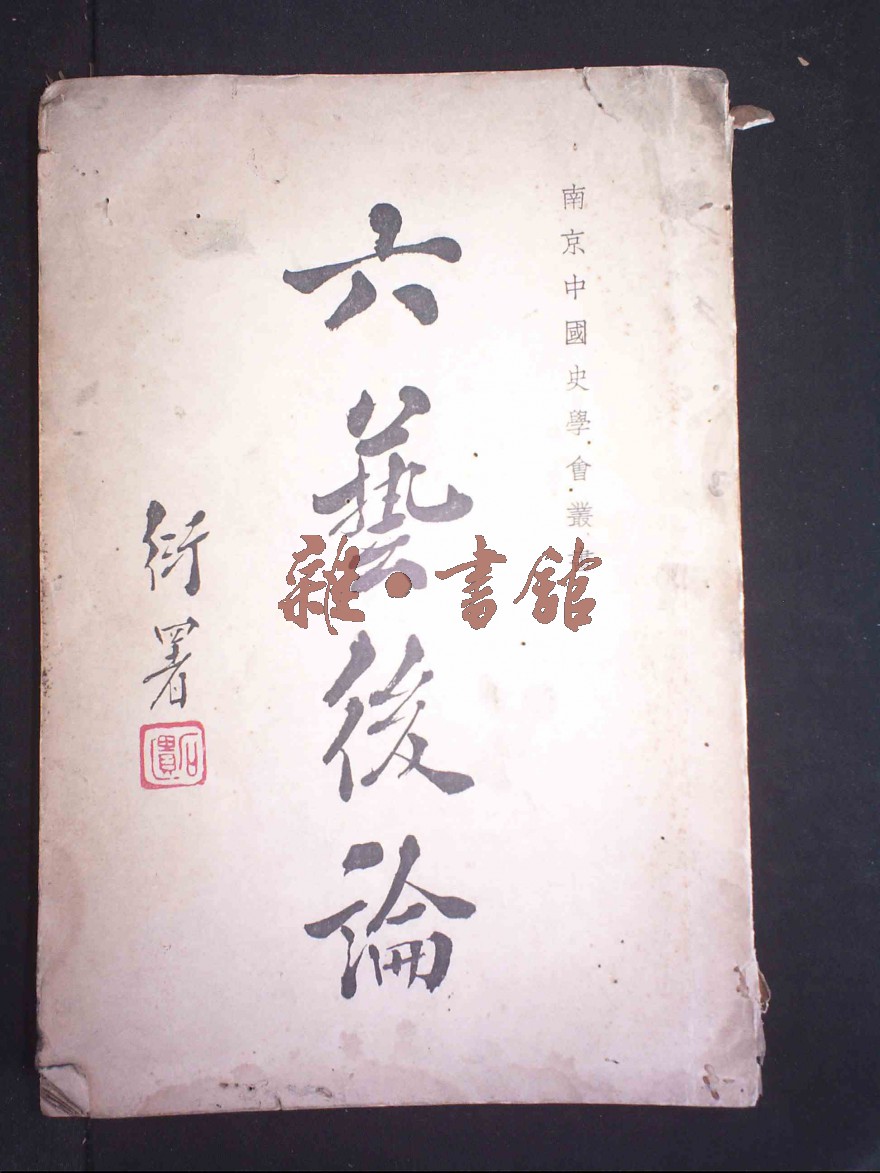 南京中國史學會叢書
六藝後論
衍署
雜·書館